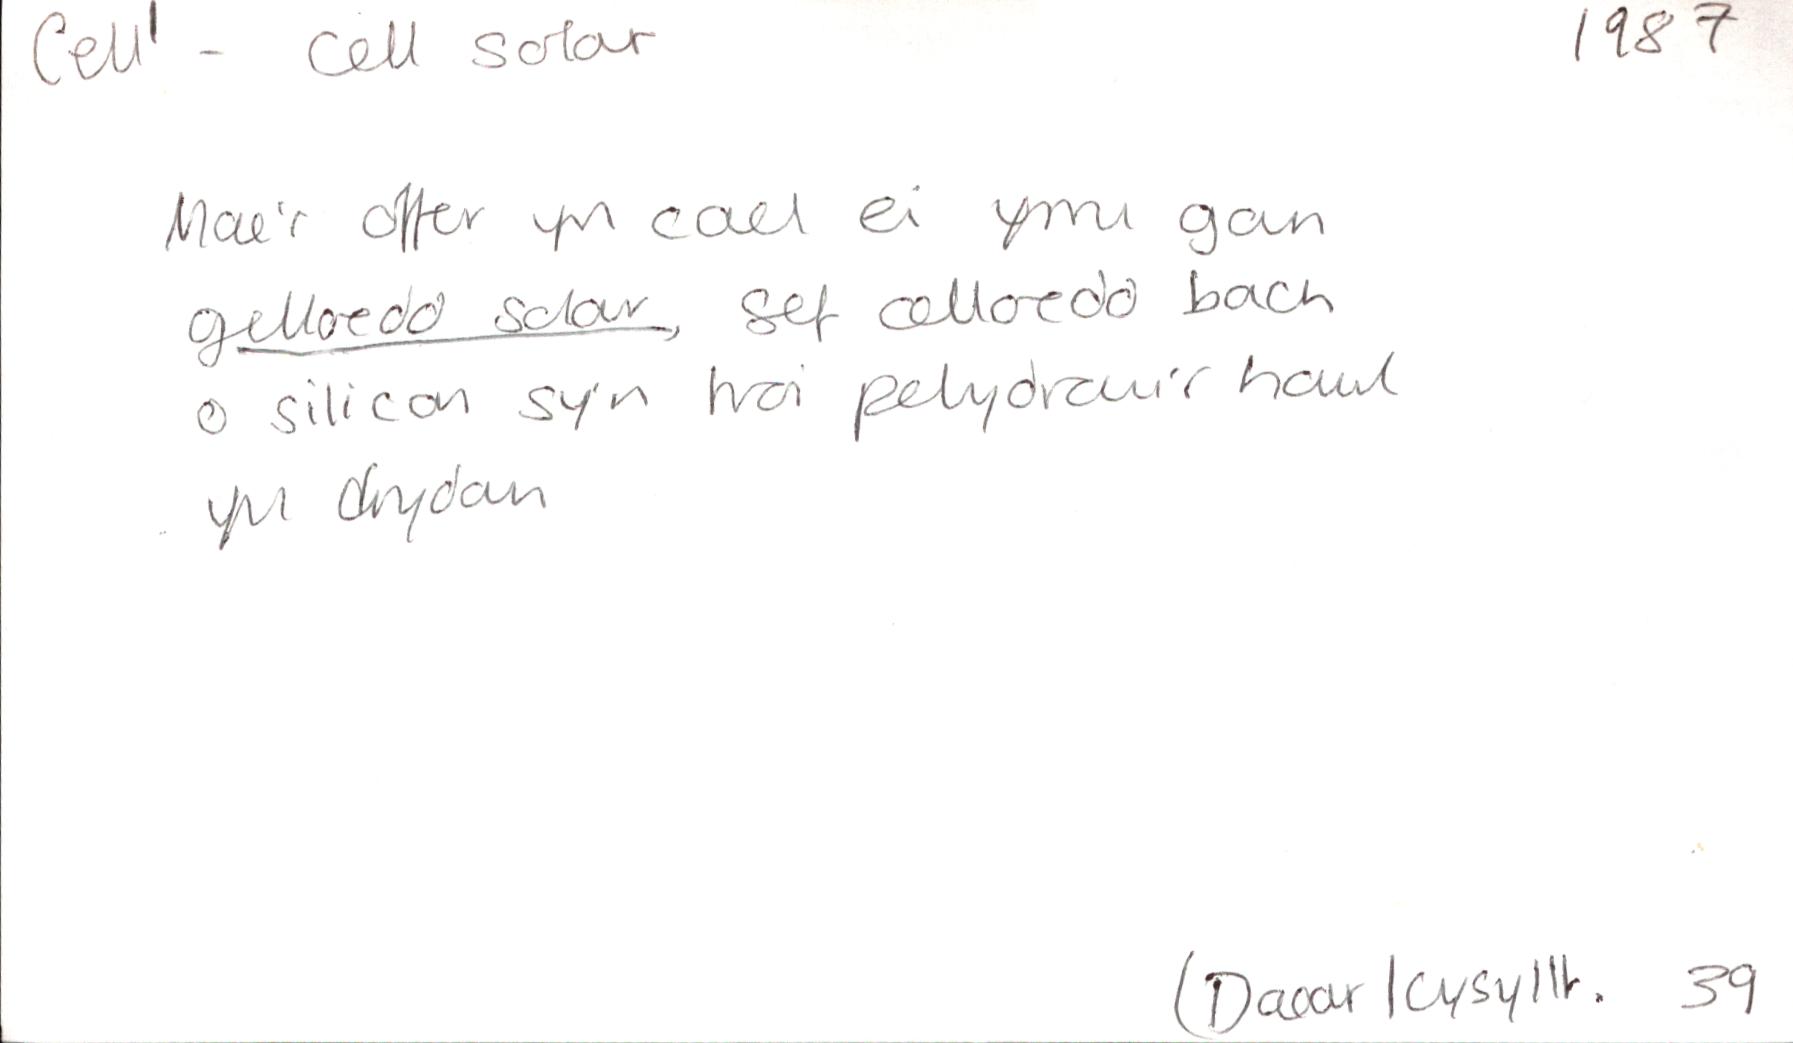 Cell¹ - cell solar 1987
Mae'r offer yn cael ei yrru gan
gelloedd solar, sef celloedd bach
o silicon sy'n troi pelydrau'r haul
yn drydan
(Daear/Cysyllt. 39